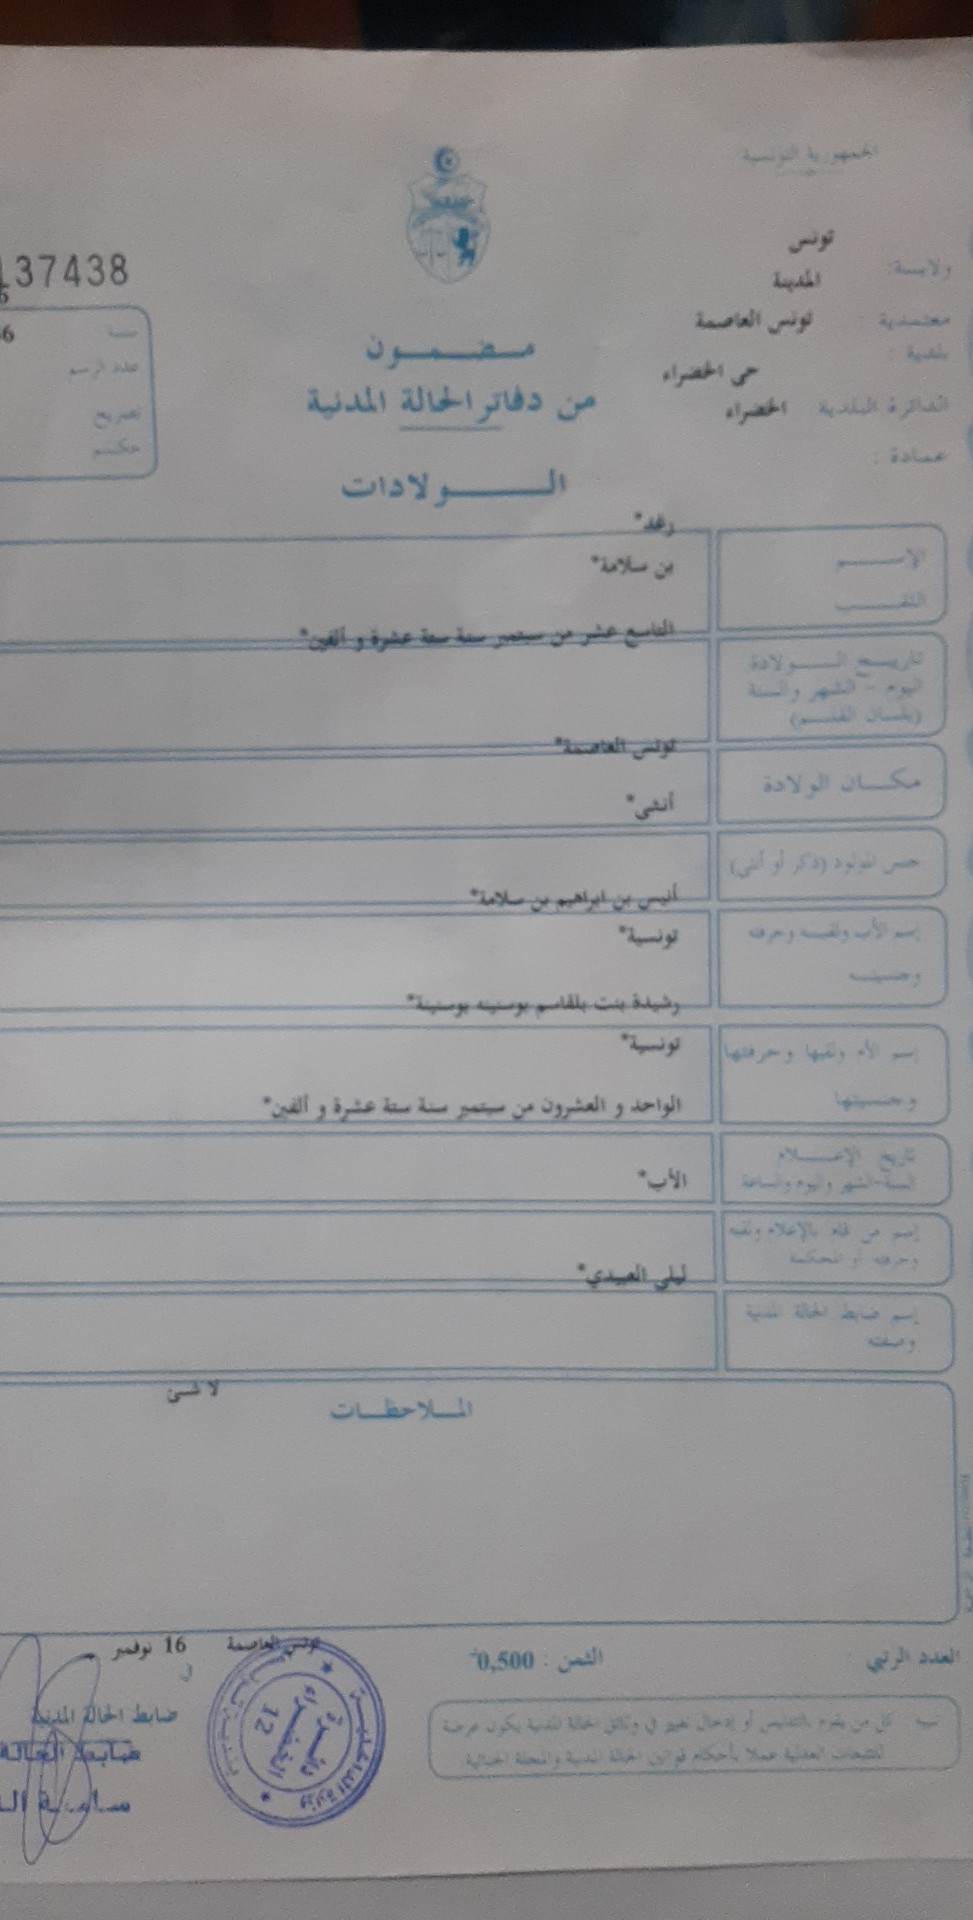 الجمهورية التونسية
137438
تونس
ولايـة:
المدينة
معتمدية : تونس العاصمة
بلدية :
حي الخضراء
الدائرة البلدية : الخضراء
عمادة :
سنة 6
عدد الرسم
تصريح
حكم
مضمون
من دفاتر الحالة المدنية
الولادات
رغد*
الإسم
بن سلامة*
اللقب
التاسع عشر من سبتمبر سنة ستة عشرة و ألفين*
تاريخ الولادة
اليوم - الشهر والسنة
(بلسان القلم)
تونس العاصمة*
مكان الولادة
أنثى*
جنس المولود (ذكر أو أنثى)
أنيس بن ابراهيم بن سلامة*
إسم الأب ولقبه وحرفته
تونسية*
وجنسيته
رشيدة بنت بلقاسم بوسنينه بوسنينة*
إسم الأم ولقبها وحرفتها
تونسية*
وجنسيتها
الواحد و العشرون من سبتمبر سنة ستة عشرة و ألفين*
تاريخ الإعلام
السنة-الشهر واليوم والساعة
الأب*
إسم من قام بالإعلام ولقبه
وحرفته أو المحكمة
ليلى العبيدي*
إسم ضابط الحالة المدنية
وصفته
لا شئ
الملاحظات
تونس العاصمة 16 نوفمبر
في
العدد الرتبي
الثمن : 0,500د
ضابط الحالة المدنية
ضابط الحالة
وزارة الداخلية
دائرة
الخضراء
12
تنبيه كل من يقوم بالتدليس أو إدخال تغيير في وثائق الحالة المدنية يكون عرضة
للتتبعات العدلية عملا بأحكام قوانين الحالة المدنية والمجلة الجنائية